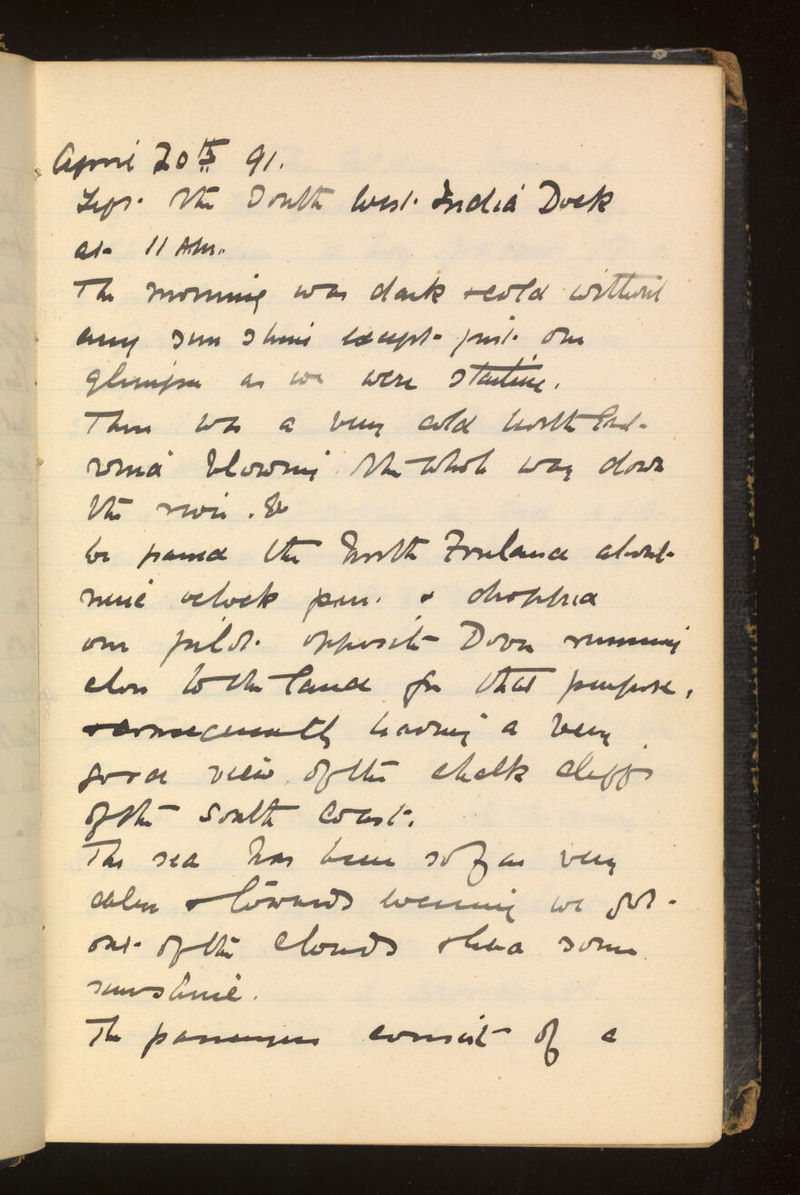 April 20th 91.
Left the South West India Dock
at 11 AM.
The morning was dark & cold without
any sun shine except just one
glimpse as we were starting.
There was a very cold North East
wind blowing the whole way down
the river.
We passed the North Foreland about
nine oclock p.m. & dropped
our pilot opposite Dover running
close to the land for that purpose,
& consequently having a very
good view of the chalk cliffs
of the South Coast.
The sea has been so far very
calm & towards evening we got
out of the clouds & had some
sunshine.
The passengers consist of a